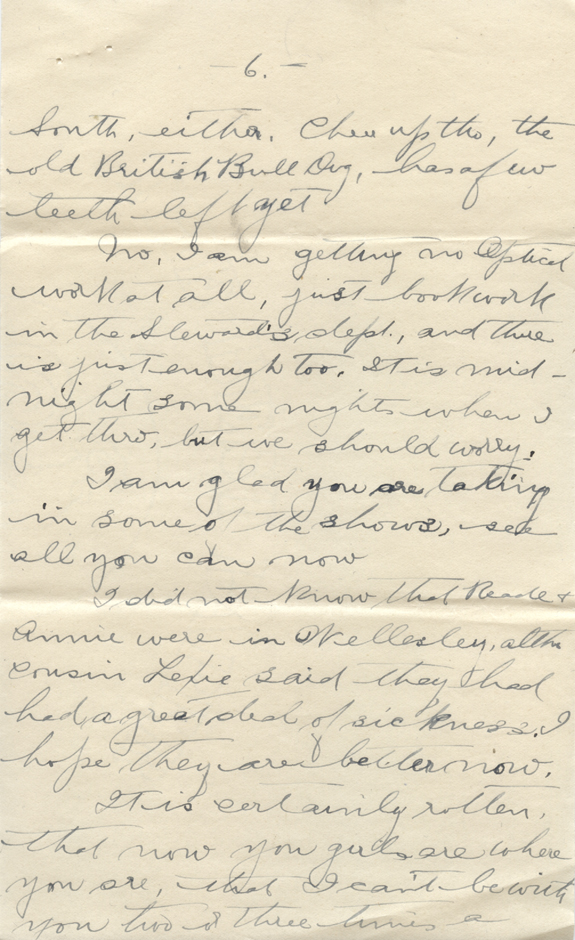 - 6. -
South, either. Cheer up tho, the
old British Bull Dog, has a few
teeth left yet
No, I am getting no Optical
work at all, just bookwork
in the Steward's dept., and there
is just enough too. It is mid-
night some nights when I
get thro, but we should worry.
I am glad you are taking
in some of the shows, see
all you can now
I did not know that Reade &
Annie were in Wellesley, altho
cousin Lexie said they had
had a great deal of sickness. I
hope they are better now.
It is certainly rotten,
that now you girls are where
you are, that I can't be with
you two or three times a